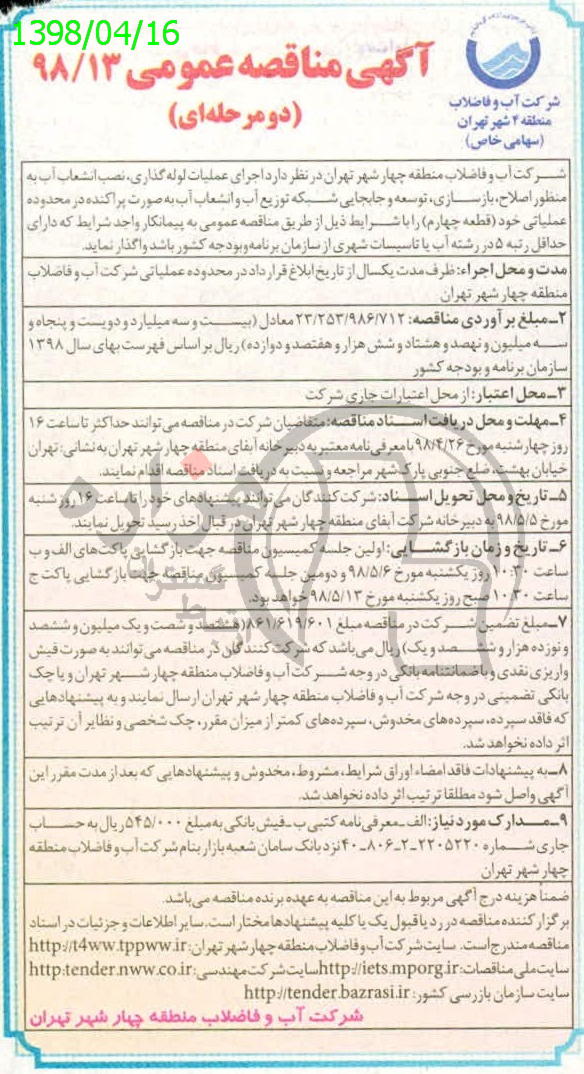 1398/04/16
آگهی مناقصه عمومی ۹۸/۱۳
(دو مرحله‌ای)
شرکت آب و فاضلاب
منطقه ۴ شهر تهران
(سهامی خاص)
شرکت آب و فاضلاب منطقه چهار شهر تهران در نظر دارد اجرای عملیات لوله گذاری، نصب انشعاب آب به
منظور اصلاح، بازسازی، توسعه و جابجایی شبکه توزیع آب و انشعاب آب به صورت پراکنده در محدوده
عملیاتی خود (قطعه چهارم) را با شرایط ذیل از طریق مناقصه عمومی به پیمانکار واجد شرایط که دارای
حداقل رتبه ۵ در رشته آب یا تاسیسات شهری از سازمان برنامه و بودجه کشور باشد واگذار نماید.
مدت و محل اجراء: ظرف مدت یکسال از تاریخ ابلاغ قرارداد در محدوده عملیاتی شرکت آب و فاضلاب
منطقه چهار شهر تهران
۲ـ مبلغ برآوردی مناقصه: ۲۳/۲۵۳/۹۸۶/۷۱۲ معادل (بیست و سه میلیارد و دویست و پنجاه و
سه میلیون و نهصد و هشتاد و شش هزار و هفتصد و دوازده) ریال بر اساس فهرست بهای سال ۱۳۹۸
سازمان برنامه و بودجه کشور
۳ـ محل اعتبار: از محل اعتبارات جاری شرکت
۴ـ مهلت و محل دریافت اسناد مناقصه: متقاضیان شرکت در مناقصه می توانند حداکثر تا ساعت ۱۶
روز چهارشنبه مورخ ۹۸/۴/۲۶ با معرفی نامه معتبر به دبیرخانه آبفای منطقه چهار شهر تهران به نشانی: تهران
خیابان بهشت، ضلع جنوبی پارک شهر مراجعه و نسبت به دریافت اسناد مناقصه اقدام نمایند.
۵ـ تاریخ و محل تحویل اسناد: شرکت کنندگان می توانند پیشنهادهای خود را تا ساعت ۱۶ روز شنبه
مورخ ۹۸/۵/۵ به دبیرخانه شرکت آبفای منطقه چهار شهر تهران در قبال اخذ رسید تحویل نمایند.
۶ـ تاریخ و زمان بازگشایی: اولین جلسه کمیسیون مناقصه جهت بازگشایی پاکت‌های الف و ب
ساعت ۱۰:۳۰ روز یکشنبه مورخ ۹۸/۵/۶ و دومین جلسه کمیسیون مناقصه جهت بازگشایی پاکت ج
ساعت ۱۰:۳۰ صبح روز یکشنبه مورخ ۹۸/۵/۱۳ خواهد بود.
۷ـ مبلغ تضمین شرکت در مناقصه مبلغ ۸۶۱/۶۱۹/۶۰۱ (هشتصد و شصت و یک میلیون و ششصد
و نوزده هزار و ششصد و یک) ریال می باشد که شرکت کنندگان در مناقصه می توانند به صورت فیش
واریزی نقدی و یا ضمانتنامه بانکی در وجه شرکت آب و فاضلاب منطقه چهار شهر تهران و یا چک
بانکی تضمینی در وجه شرکت آب و فاضلاب منطقه چهار شهر تهران ارسال نمایند و به پیشنهادهایی
که فاقد سپرده، سپرده‌های مخدوش، سپرده‌های کمتر از میزان مقرر، چک شخصی و نظایر آن ترتیب
اثر داده نخواهد شد.
۸ـ به پیشنهادات فاقد امضاء اوراق شرایط، مشروط، مخدوش و پیشنهادهایی که بعد از مدت مقرر این
آگهی واصل شود مطلقا ترتیب اثر داده نخواهد شد.
۹ـ مدارک مورد نیاز: الف ـ معرفی نامه کتبی ب ـ فیش بانکی به مبلغ ۵۴۵/۰۰۰ ریال به حساب
جاری شماره ۴۰-۸۰۶-۲-۲۲۰۵۲۲۰ نزد بانک سامان شعبه بازار بنام شرکت آب و فاضلاب منطقه
چهار شهر تهران
ضمنا هزینه درج آگهی مربوط به این مناقصه به عهده برنده مناقصه می‌باشد.
برگزار کننده مناقصه در رد یا قبول یک یا کلیه پیشنهادها مختار است. سایر اطلاعات و جزئیات در اسناد
مناقصه مندرج است. سایت شرکت آب و فاضلاب منطقه چهار شهر تهران: http://t4ww.tppww.ir
سایت ملی مناقصات: http://iets.mporg.ir سایت شرکت مهندسی: http:tender.nww.co.ir
سایت سازمان بازرسی کشور: http://tender.bazrasi.ir
شرکت آب و فاضلاب منطقه چهار شهر تهران